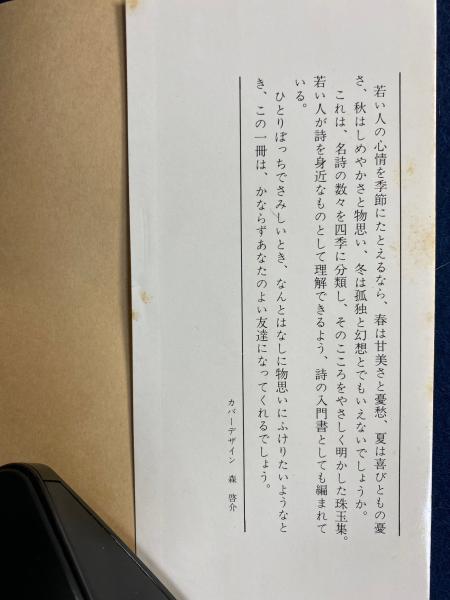 若い人の心情を季節にたとえるなら、春は甘美さと憂愁、夏は喜びともの憂
さ、秋はしめやかさと物思い、冬は孤独と幻想とでもいえないでしょうか。
これは、名詩の数々を四季に分類し、そのこころをやさしく明かした珠玉集。
若い人が詩を身近なものとして理解できるよう、詩の入門書としても編まれて
いる。
ひとりぼっちでさみしいとき、なんとはなしに物思いにふけりたいようなと
き、この一冊は、かならずあなたのよい友達になってくれるでしょう。
カバーデザイン 森 啓介